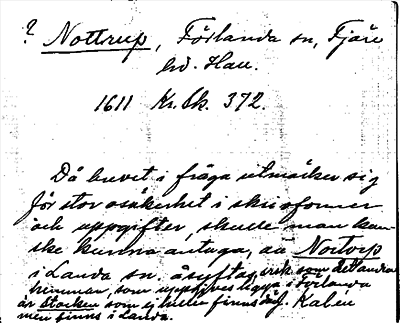 ? Nottrup, Förlanda sn, Fjäre
hd. Hall.
1611 Kr. Sk. 372.
Då brevet i fråga utmärker sig
för stor osäkerhet i skrivformer
och uppgifter, skulle man kan-
ske kunna antaga, att Nortorp
i Landa sn. åsyftas, enk som det andra
hemman, som uppgives ligga i Förlanda
är Stocken som ej heller finns där. Kalen
men finns i Landa.